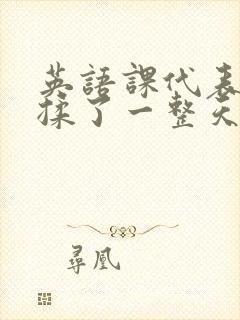 英語課代表
揉了一整天
尋凰